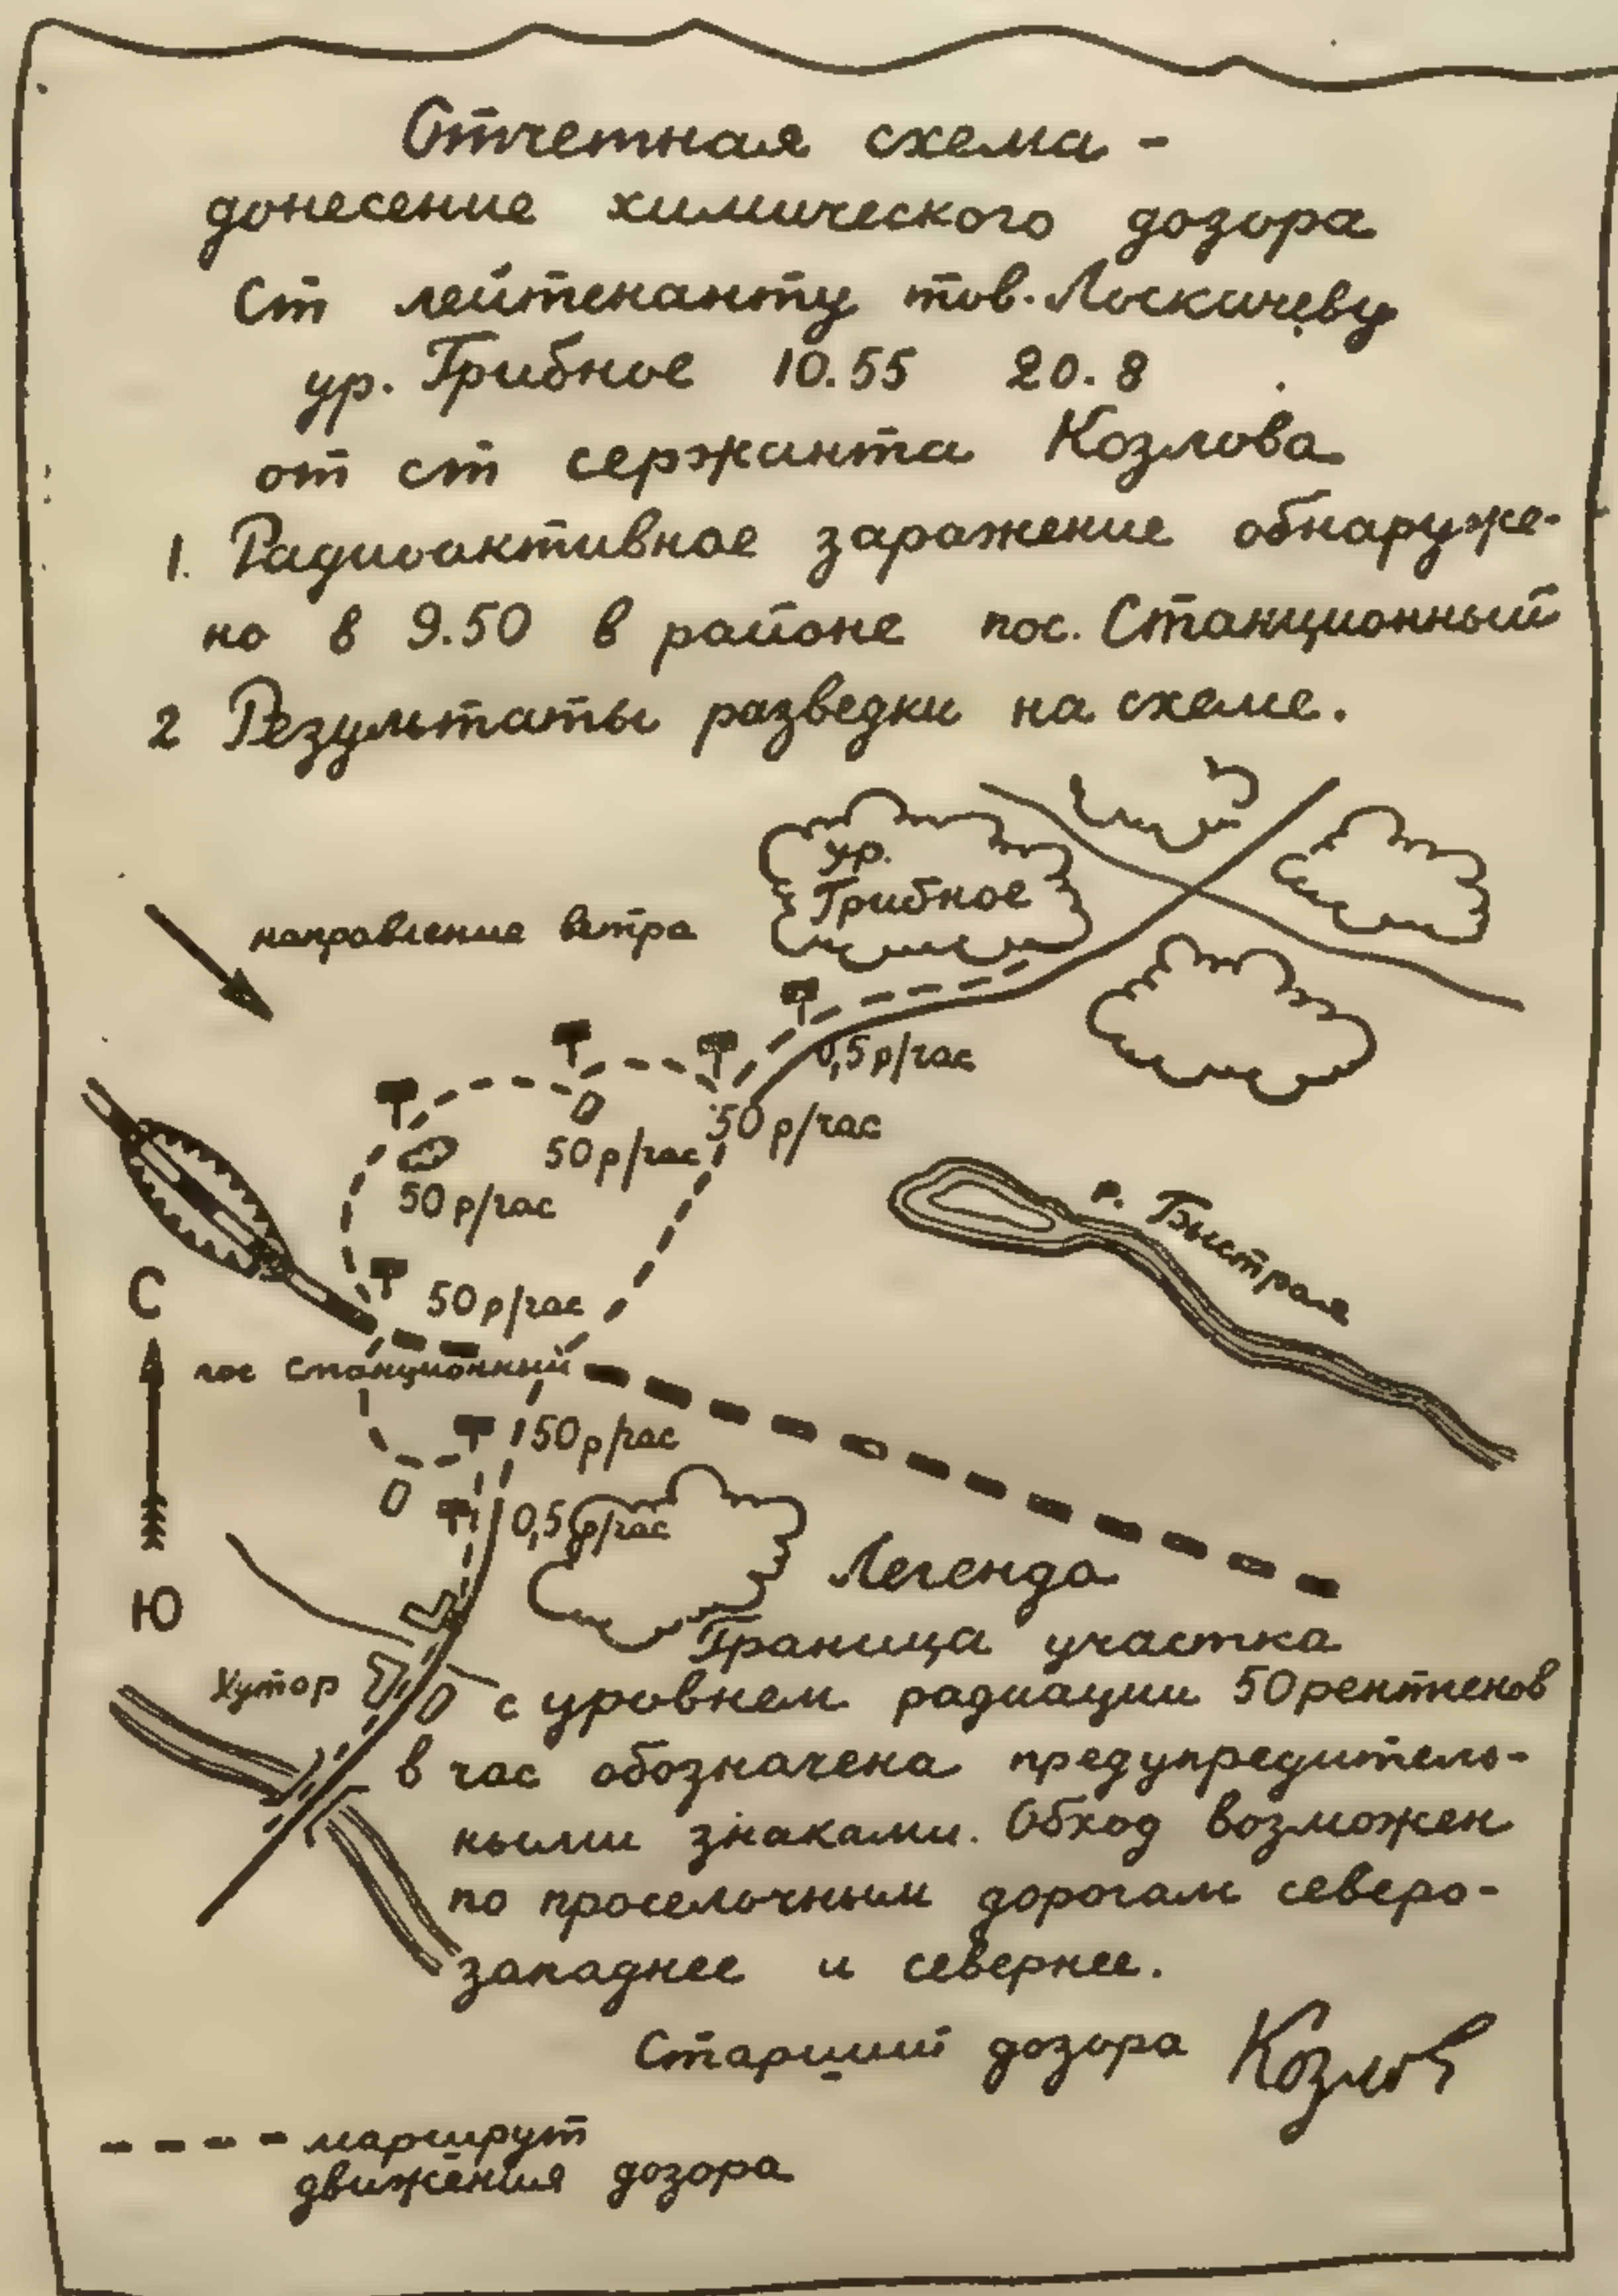 Отчетная схема -
донесение химического дозора
Ст лейтенанту тов. Лоскичеву
ур. Грибное 10.55 20.8
от ст сержанта Козлова
1. Радиоактивное заражение обнаруже-
но в 9.50 в районе пос. Станционный
2 Результаты разведки на схеме.
ур.
Грибное
направление ветра
0,5 р/час
50 р/час
50 р/час
50 р/час
р. Быстрая
С
50 р/час
пос Станционный
50 р/час
0,5 р/час
Ю
Легенда
Граница участка
Хутор
с уровнем радиации 50 рентгенов
в час обозначена предупредитель-
ными знаками. Обход возможен
по проселочным дорогам северо-
западнее и севернее.
Старший дозора Козлов
маршрут
движения дозора